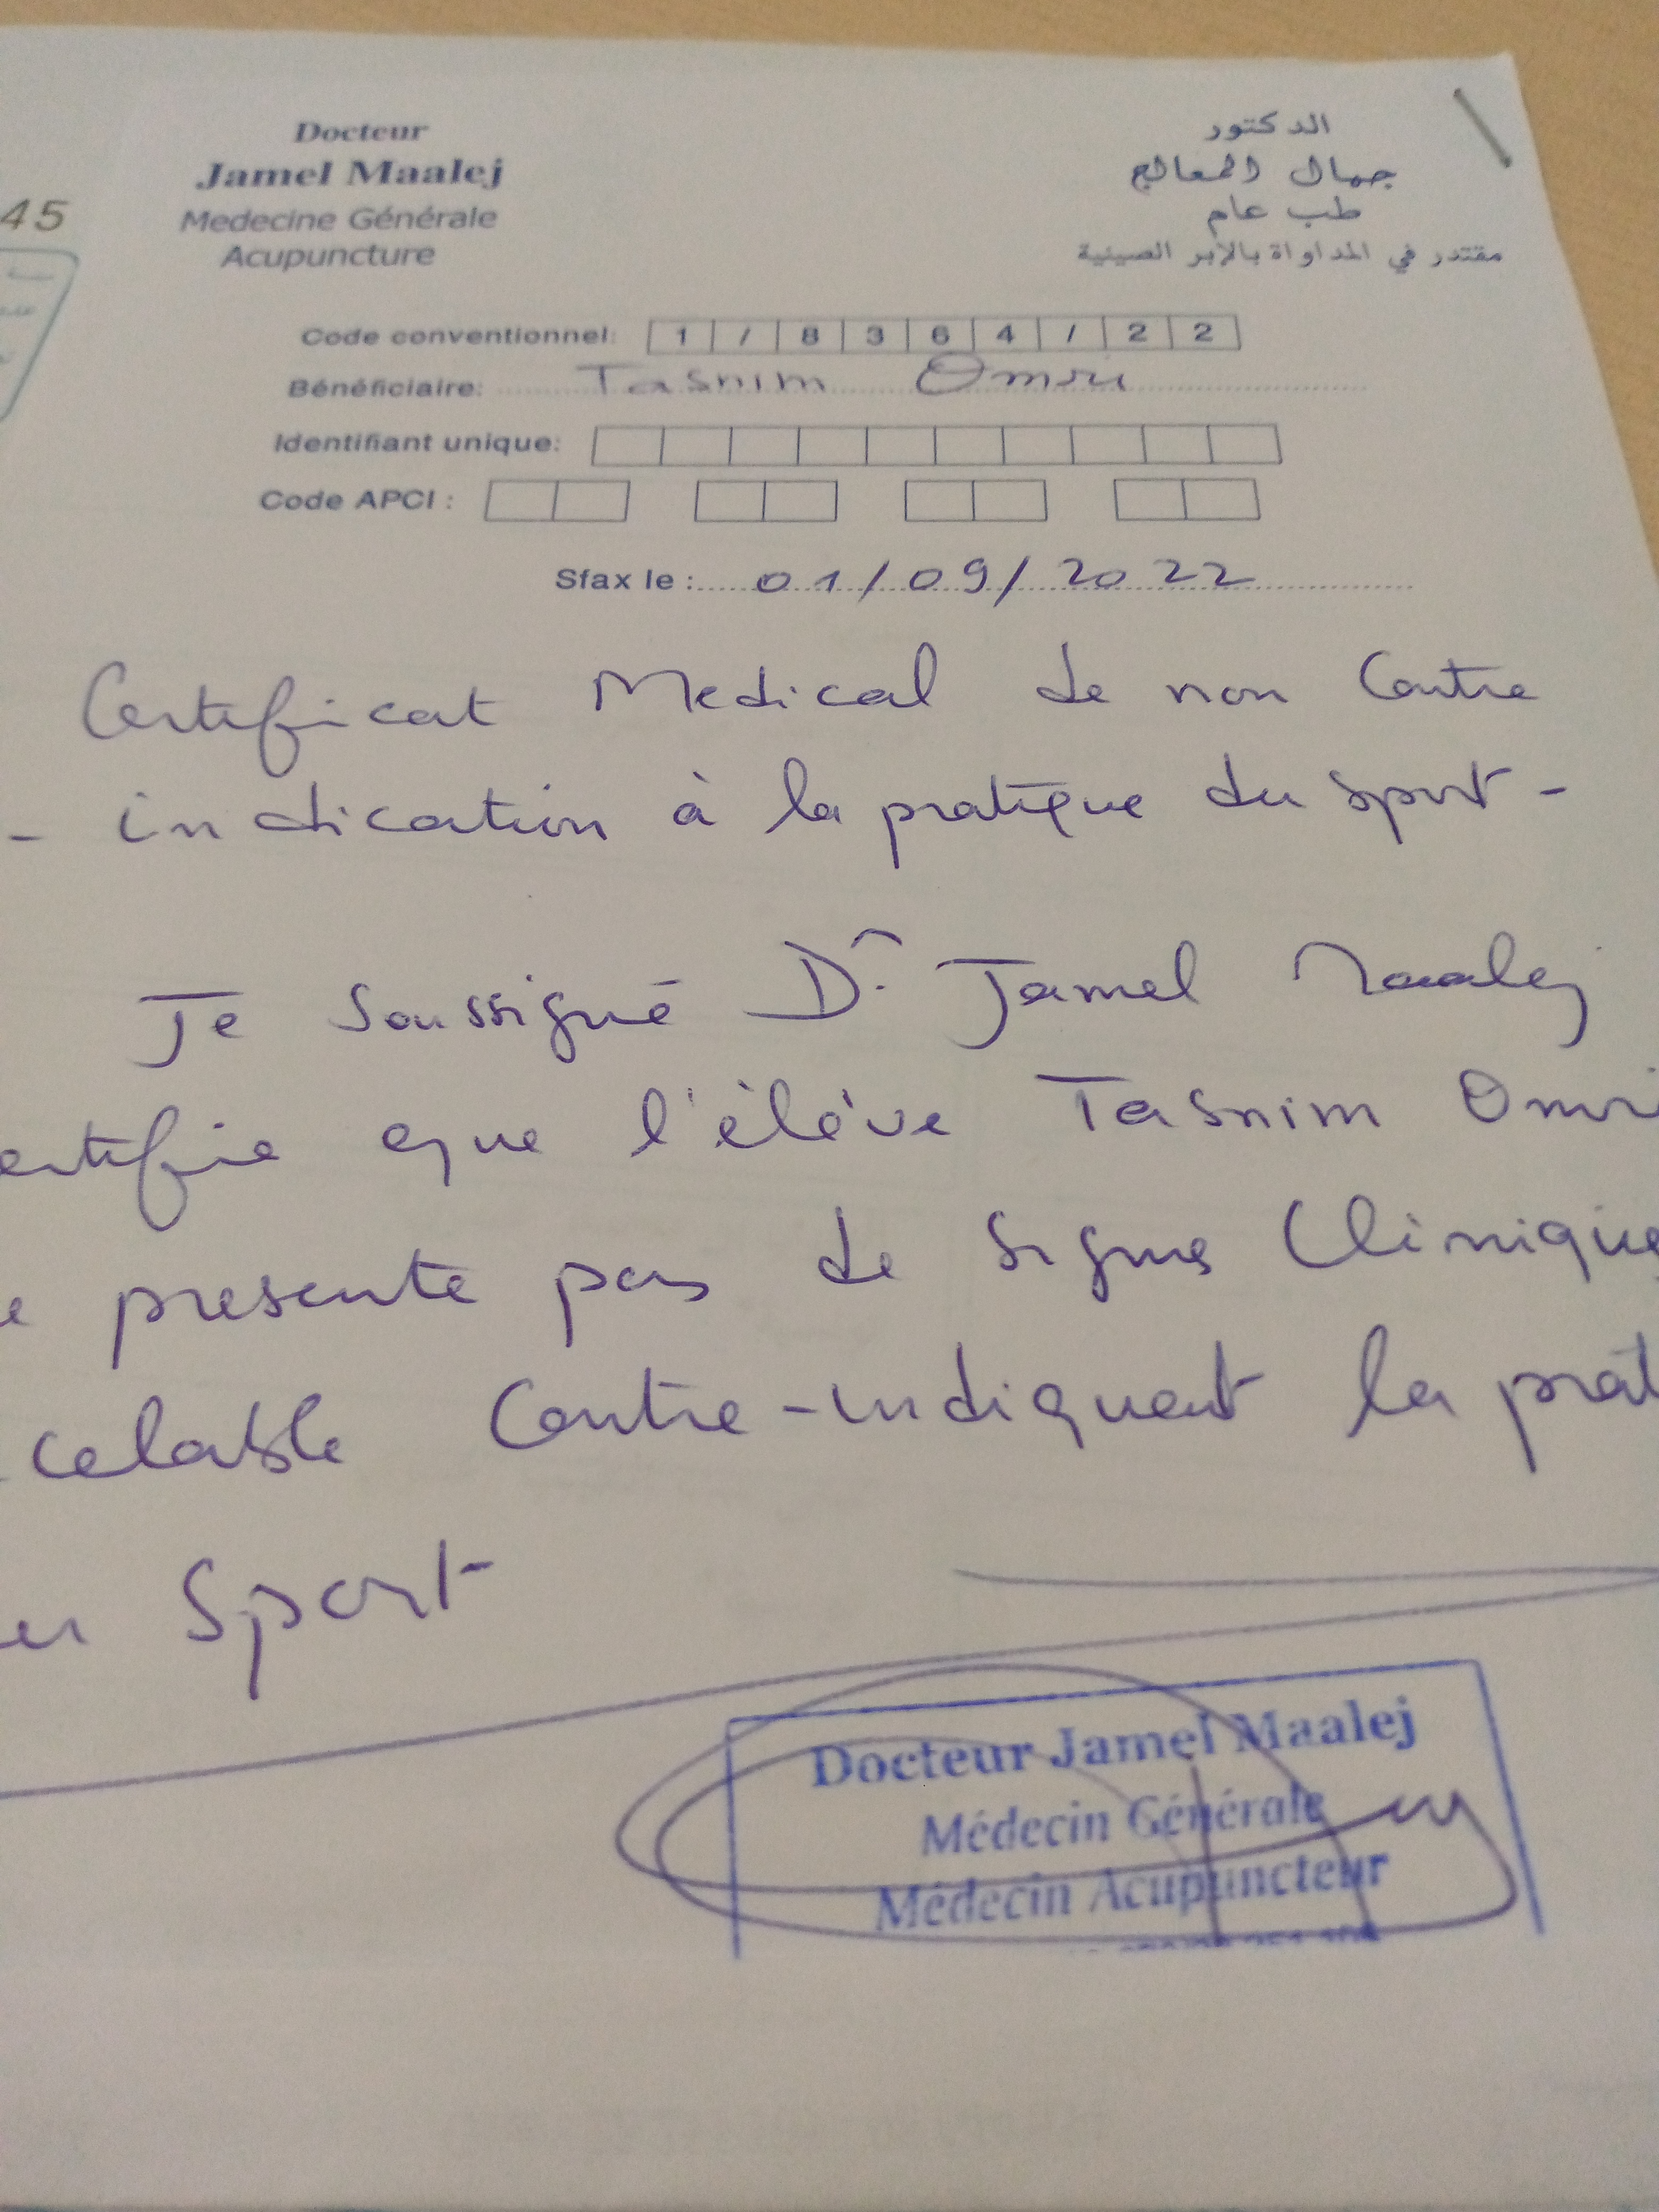 Docteur
Jamel Maalej
Medecine Générale
Acupuncture
الدكتور
جمال المعالج
طب عام
مقتدر في المداواة بالابر الصينية
45
Code conventionnel: 1 / 8 3 6 4 / 2 2
Bénéficiaire: Tasnim Omri
Identifiant unique:
Code APCI :
Sfax le : 01/09/2022
Certificat Medical de non Contre
- indication à la pratique du sport -
Je soussigné Dr Jamel Maalej
ertifie que l'élève Tasnim Omri
e presente pas de signes Clinique
celable Contre-indiquent la prat
u Sport
Docteur Jamel Maalej
Médecin Générale
Médecin Acupuncteur